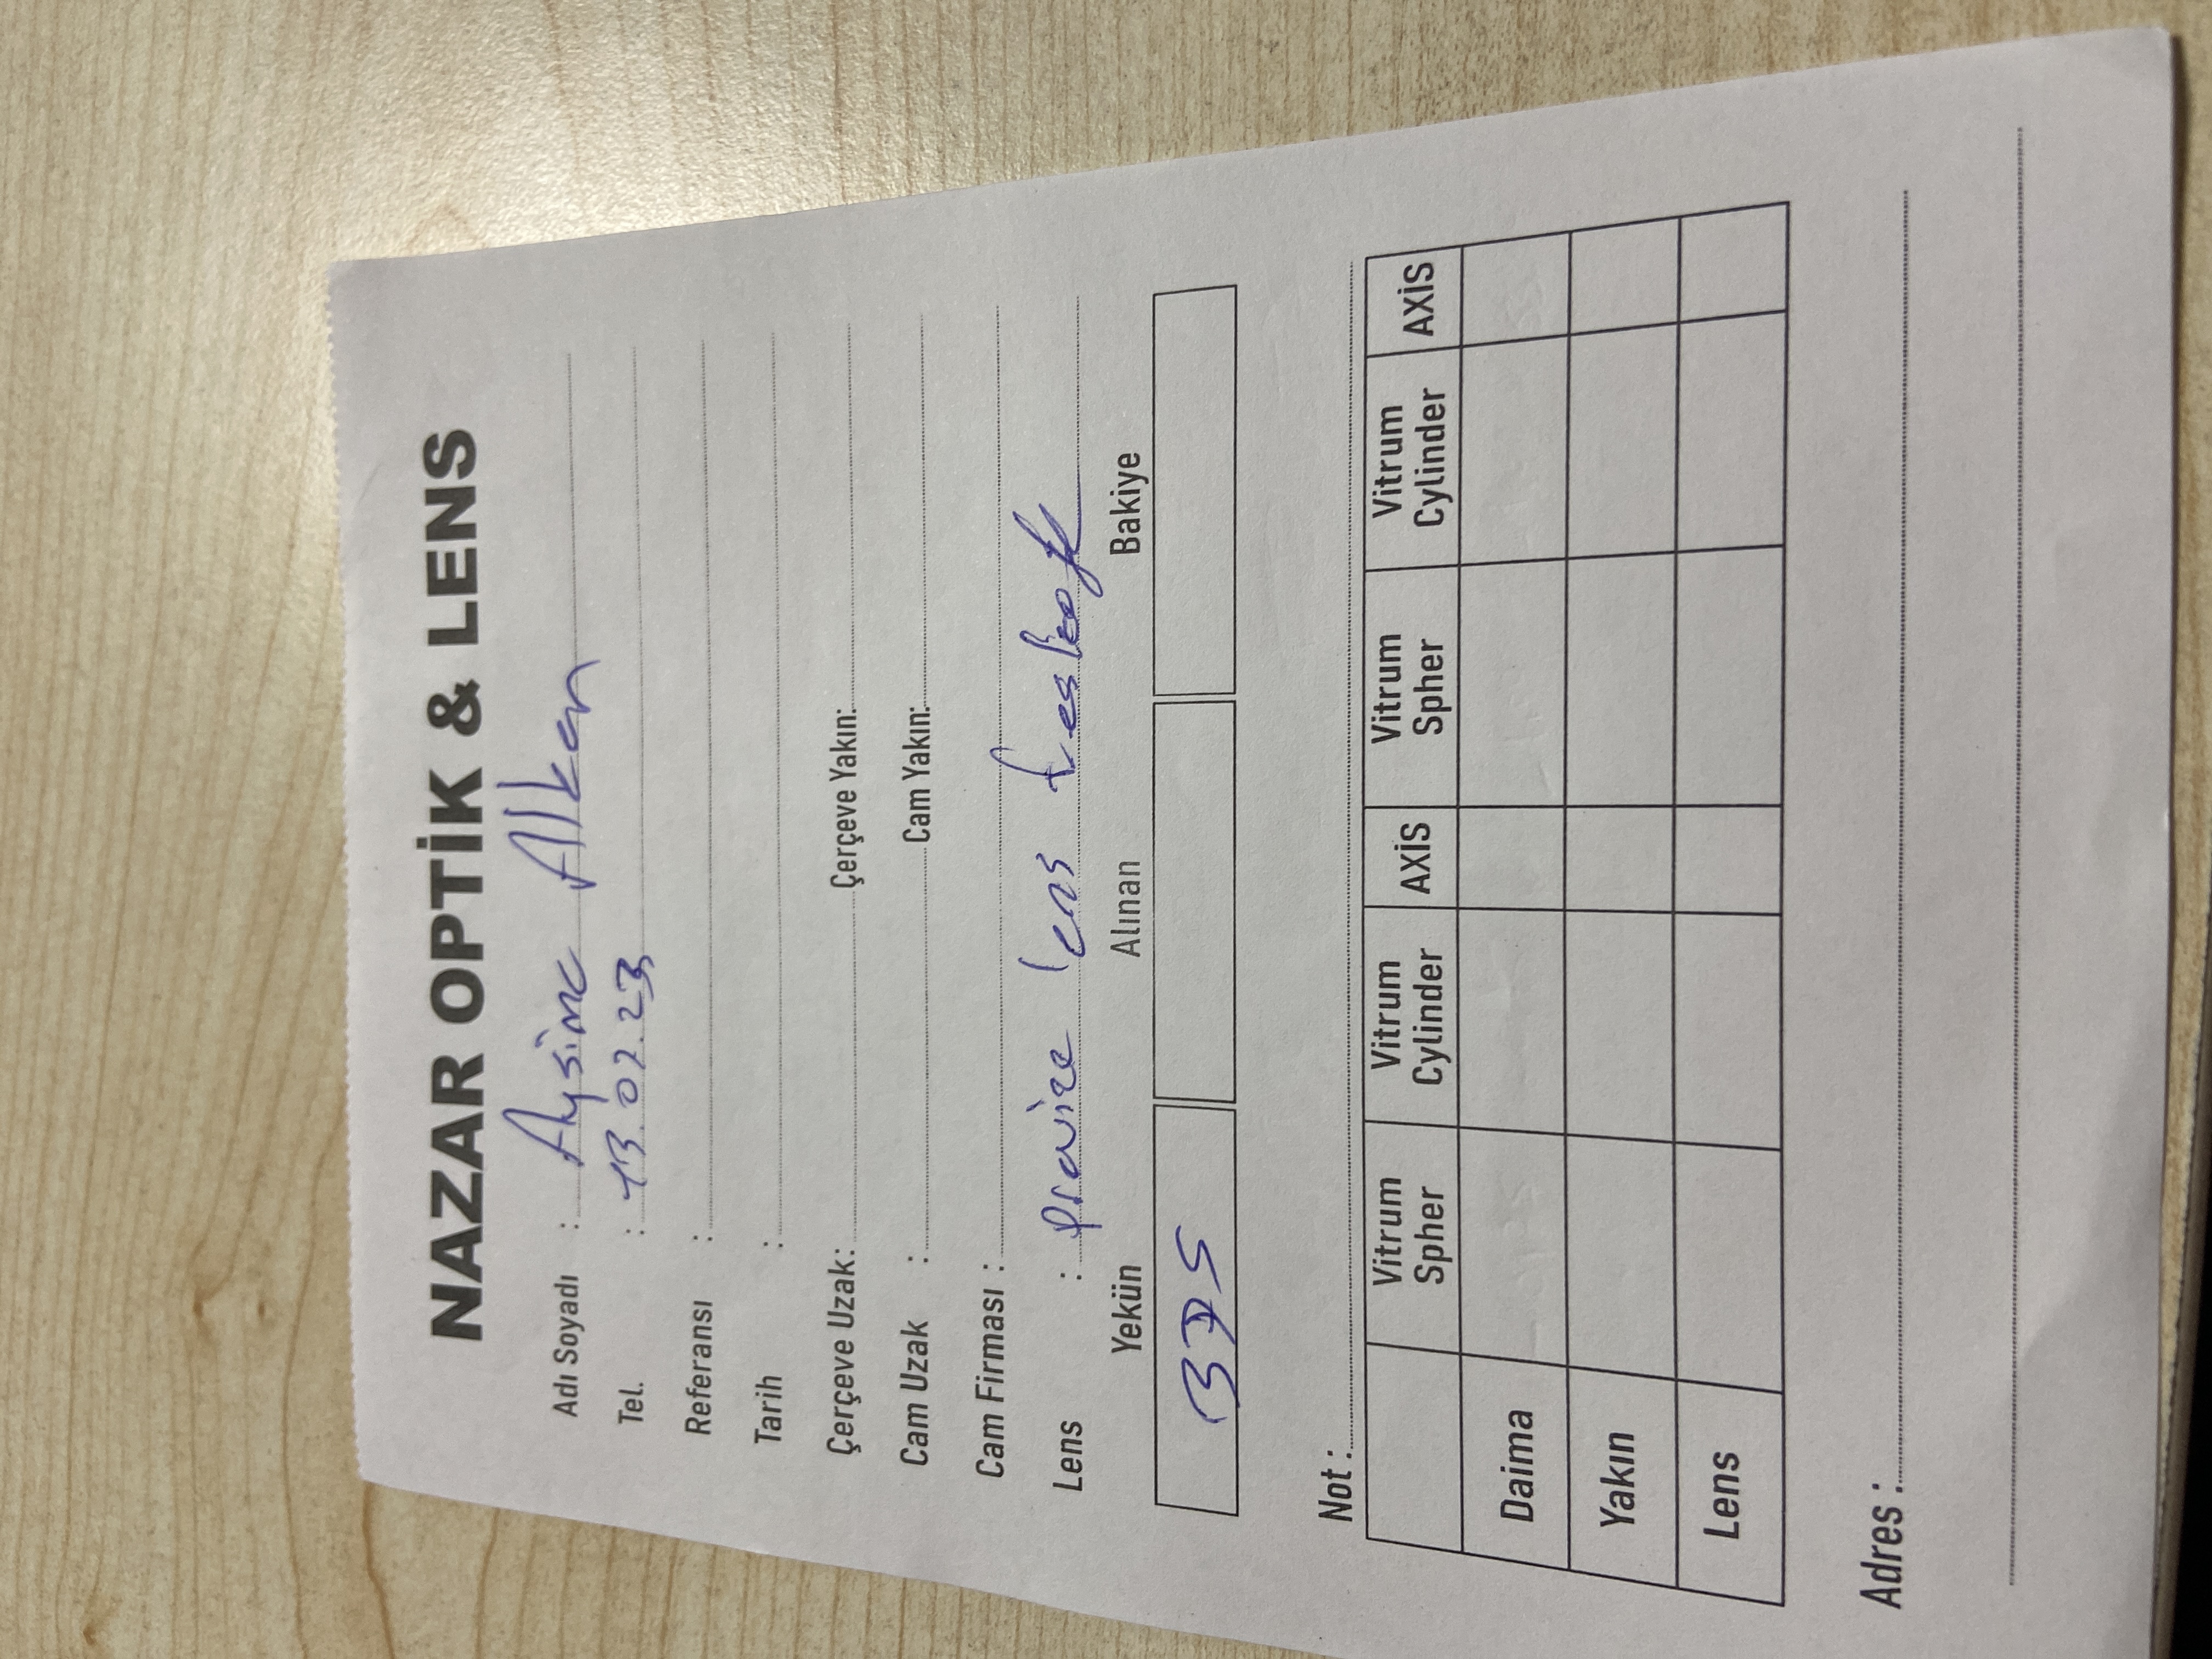 NAZAR OPTİK & LENS
Adı Soyadı : Aysime Alkan
Tel. : 13.07.23
Referansı :
Tarih :
Çerçeve Uzak: Çerçeve Yakın:
Cam Uzak : Cam Yakın:
Cam Firması :
Lens : lens
Yekün Alınan Bakiye
375
Not :
Vitrum Spher Vitrum Cylinder AXİS Vitrum Spher Vitrum Cylinder AXİS
Daima
Yakın
Lens
Adres :